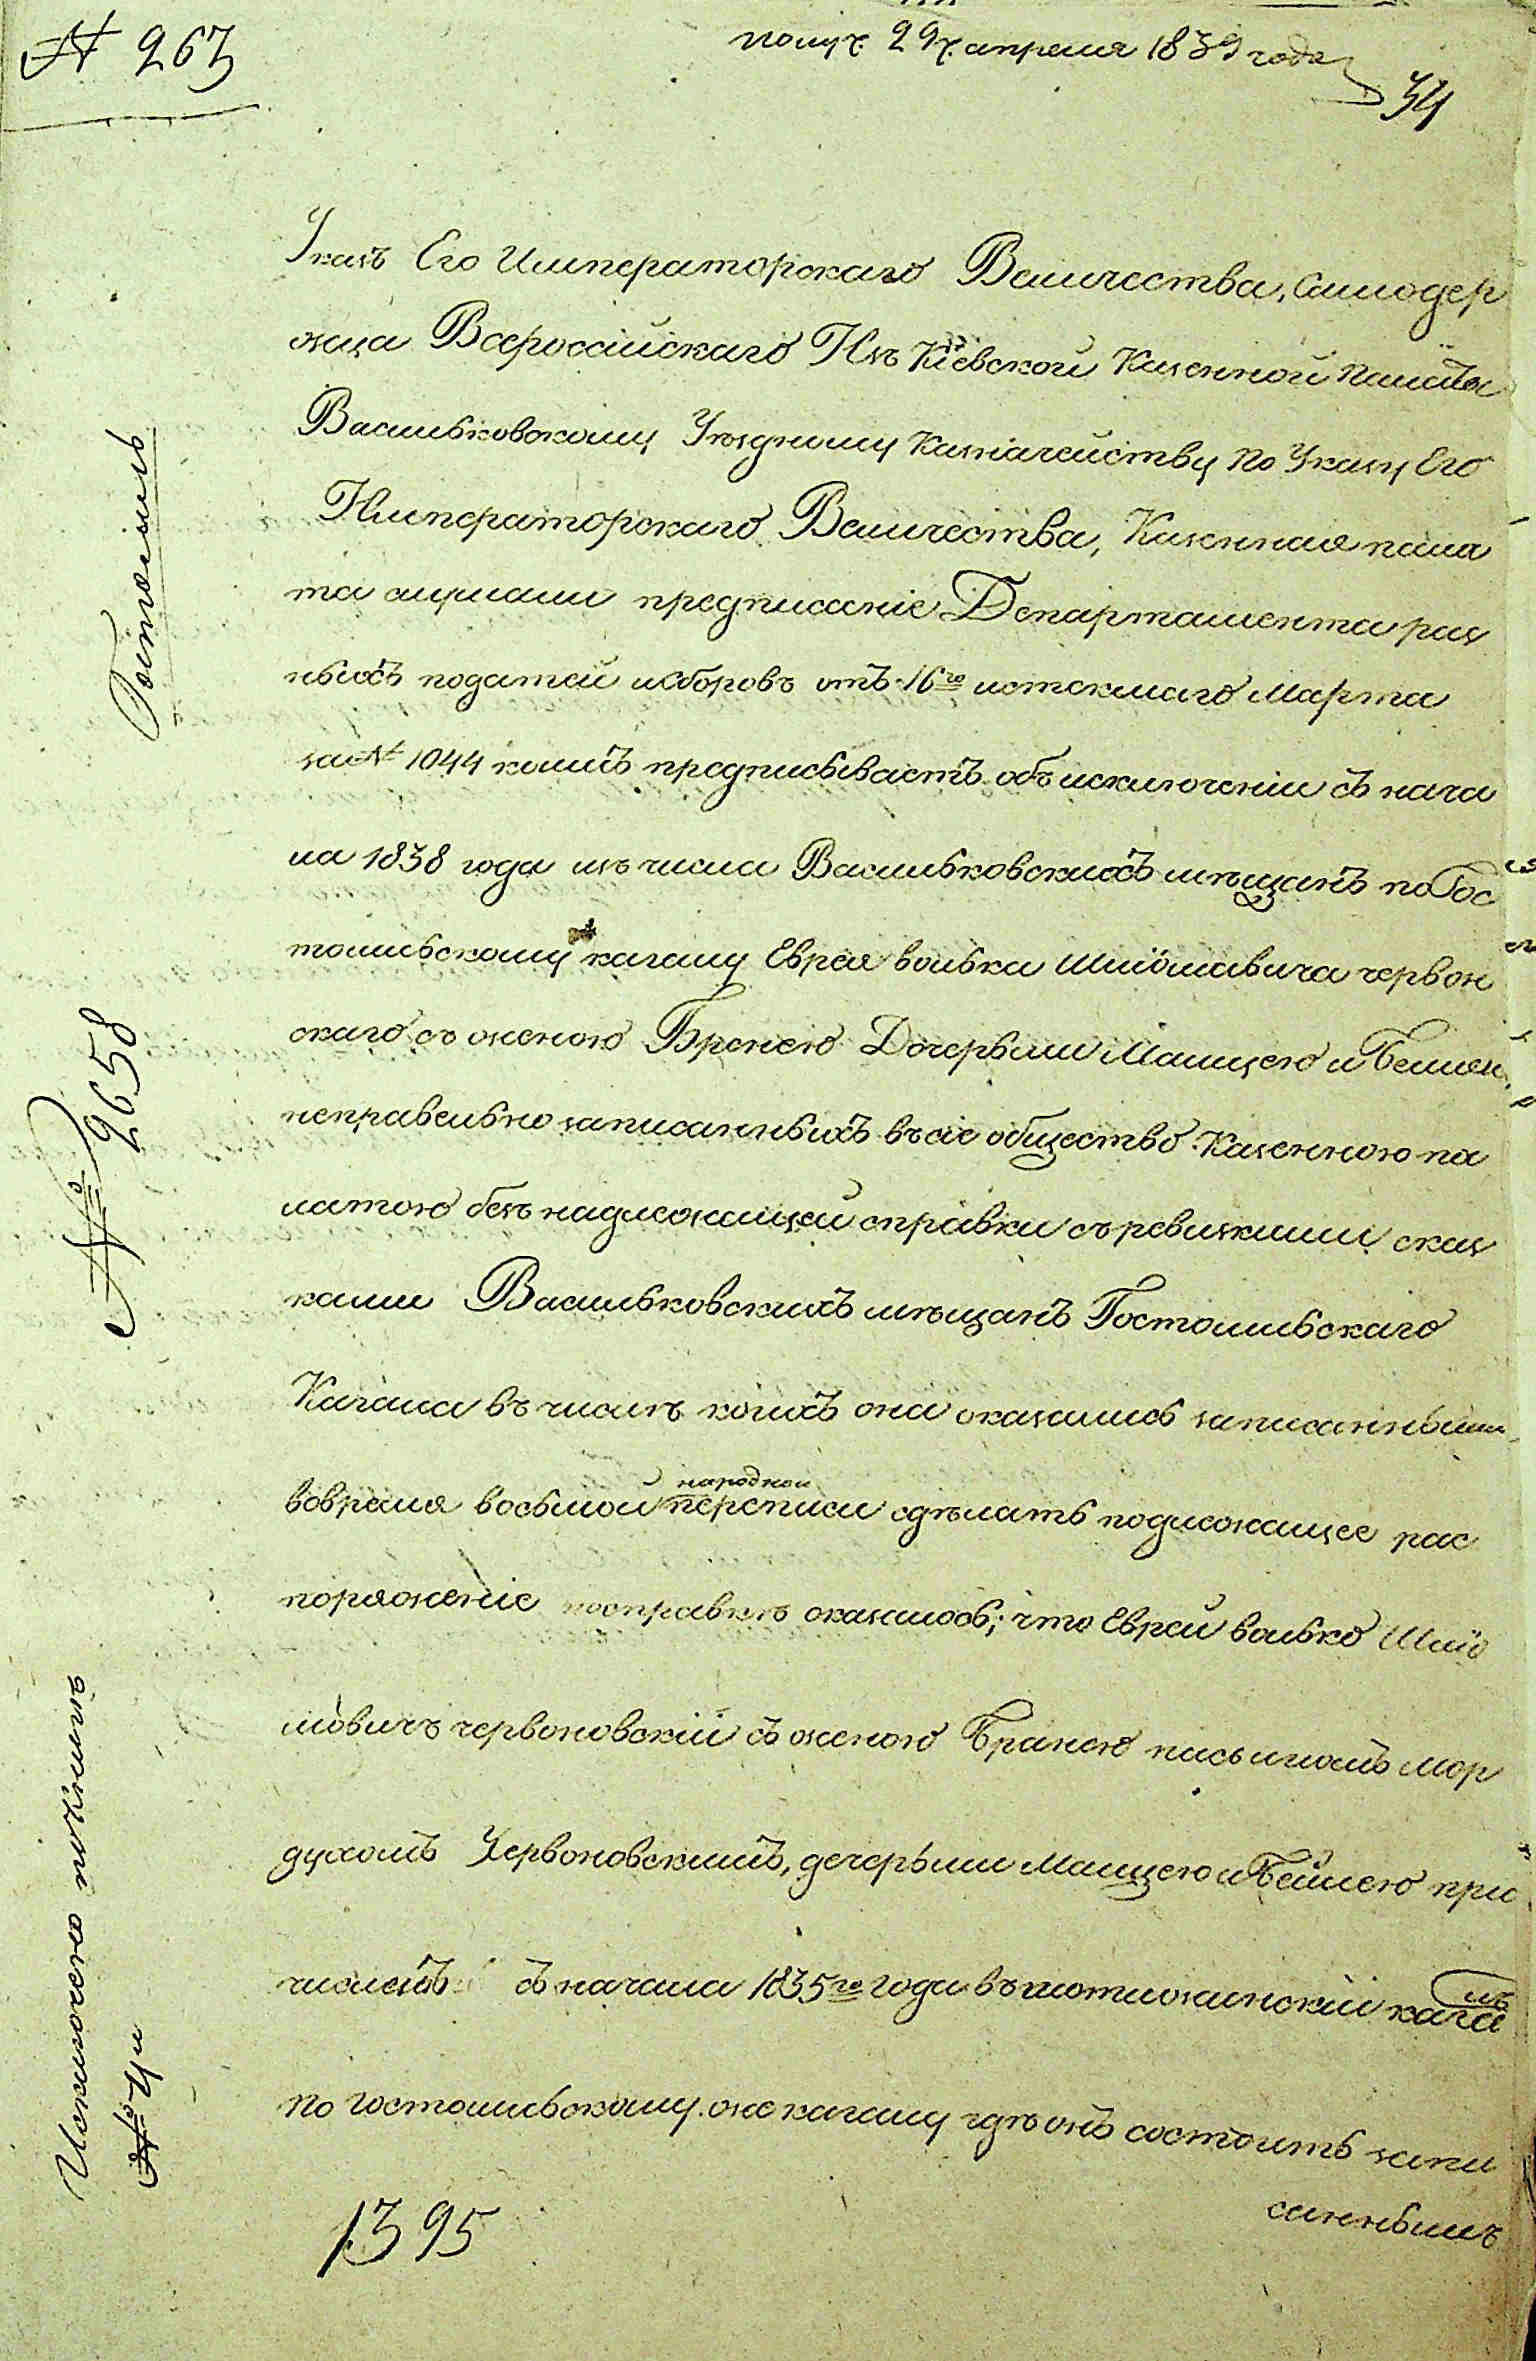 № 263
получ. 29 апреля 1839 года
34
Указъ Его Императорскаго Величества, Самодер
жца Всероссійскаго Изъ Кіевской Казенной палаты
Васильковскому Уѣздному Казначейству По Указу Его
Императорскаго Величества, Казенная пала
та слушали предписаніе Департамента раз
ныхъ податей и сборовъ отъ 16го истекшаго Марта
за № 1044 коимъ предписываетъ объ исключеніи съ нача
ла 1838 года изъ числа Васильковскихъ мѣщанъ по Гос
томльскому кагалу Еврея волька Шліомавича червон
скаго съ женою Бренею Дочерьми Малцею и Бейлею
неправельно записанныхъ въ сіе общество Казенною па
латою безъ надлежащей справки съ ревизкими сказ
ками Васильковскихъ мѣщанъ Гостомльскаго
Кагала въ числѣ коихъ они оказались записанными
вовремя восьмой народной переписи сдѣлать подлежащее рас
поряженіе посправкѣ оказалось; что Еврей волько Шлю
мовичъ червоновскій съ женою Бранею
Мор
духомъ Червоновскимъ, дечерьми Малцею и Бейлею при
численъ съ начала 1835го года въ кагалъ
по гостомльскому же кагалу гдѣ онъ состоитъ запи
саннымъ
1395
Гостомль
№ 2658
Исключено
№